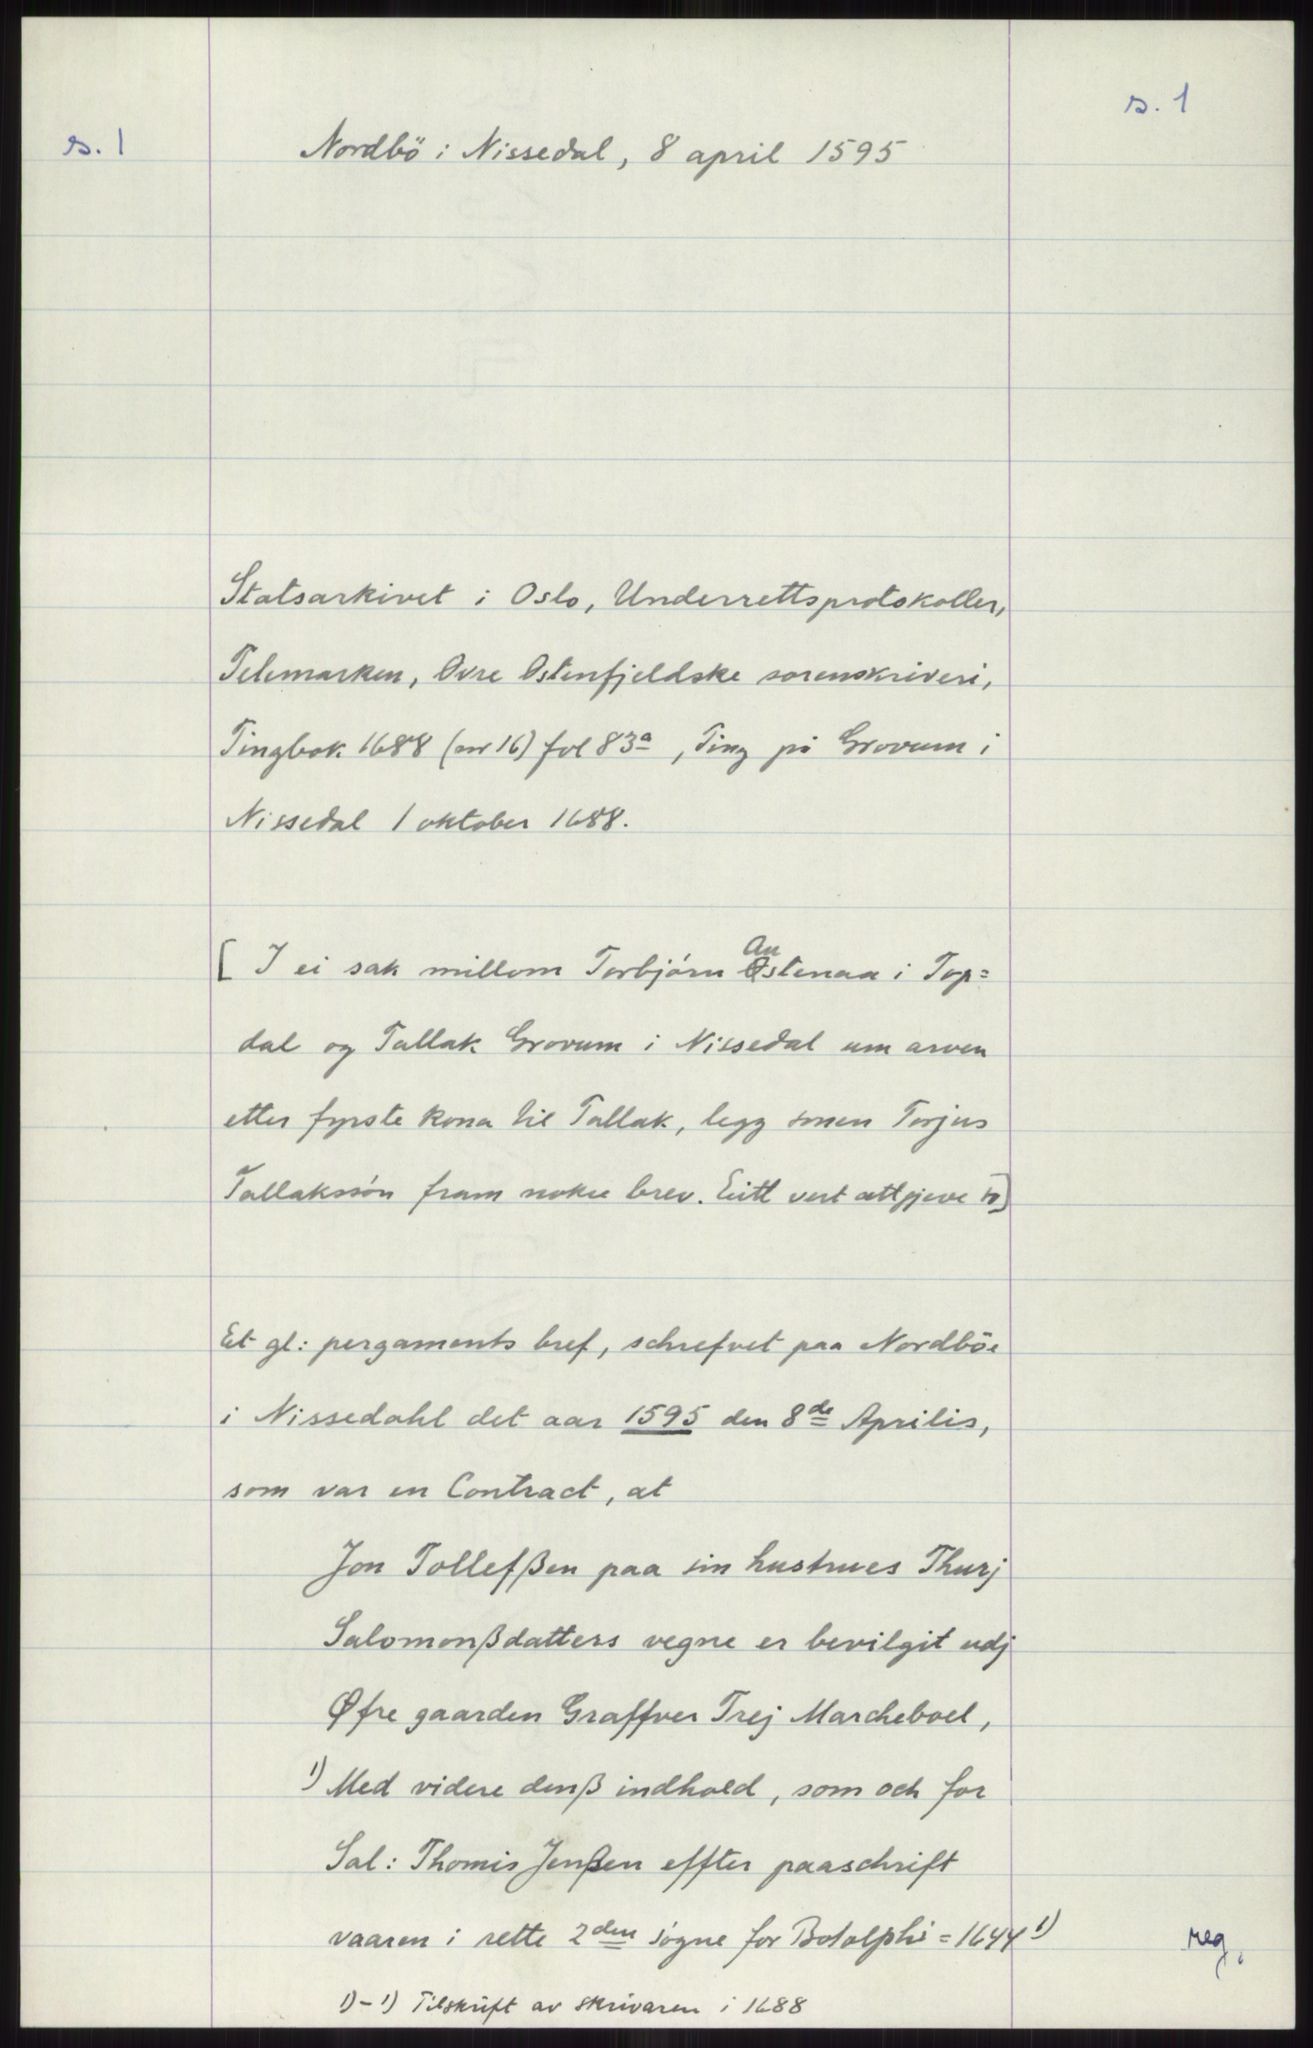 s. 1
s. 1
Nordbö i Nissedal, 8 april 1595
Statsarkivet i Oslo, Underrettsprotokoller,
Telemarken, Øvre Østenfjeldske sorenskriveri,
Tingbok 1688 (nr 16) fol 83a, Ting på Grovum i
Nissedal 1 oktober 1688.
[ I ei sak millom Torbjörn Austenaa i Top=
dal og Tallak Grovum i Nissedal um arven
etter fyrste kona til Tallak, legg sonen Torjus
Tallakssön fram nokre brev. Eitt vert attgjeve so]
Et gl: pergaments bref, schrefvet paa Nordböe
i Nissedahl det aar 1595 den 8de Aprilis,
som var en Contract, at
Jon Tollefßen paa sin hustrues Thurj
Salomonßdatters vegne er bevilgit udj
Øfre gaarden Graffver Trej Marcheboel,
1) Med videre denß indhold, som och for
Sal: Thomis Jenßen effter paaschrift
vaaren i rette 2den sögne for Botolphi = 1644 1)
reg.
1)-1) Tilskrift av skrivaren i 1688